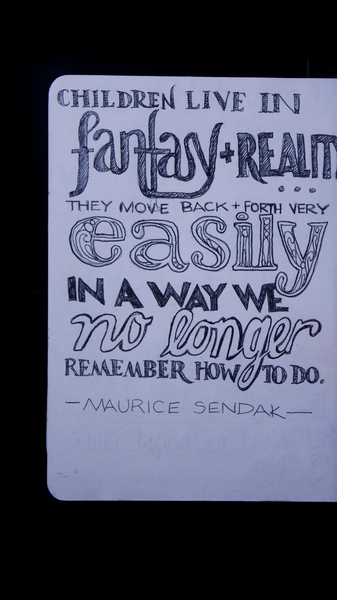 CHILDREN LIVE IN
fantasy + REALITY
...
THEY MOVE BACK + FORTH VERY
easily
IN A WAY WE
no longer
REMEMBER HOW TO DO.
—MAURICE SENDAK—